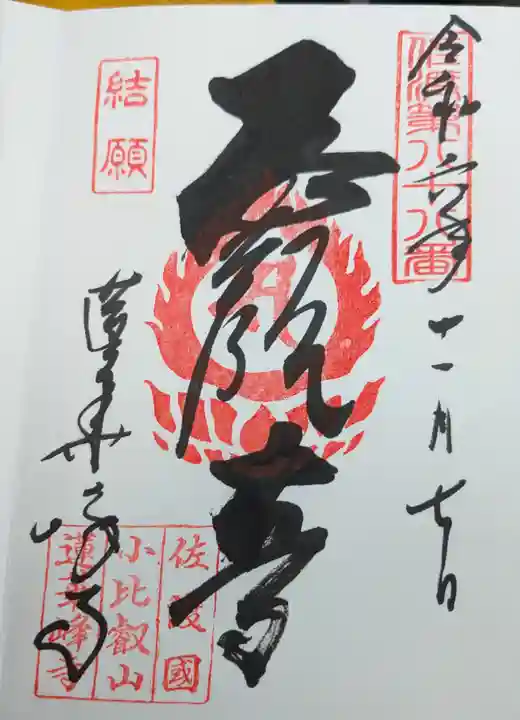 佐渡第八十八番
令和六年十一月七日
正観音
結願
蓮華峰寺
佐渡國
小比叡山
蓮華峰寺